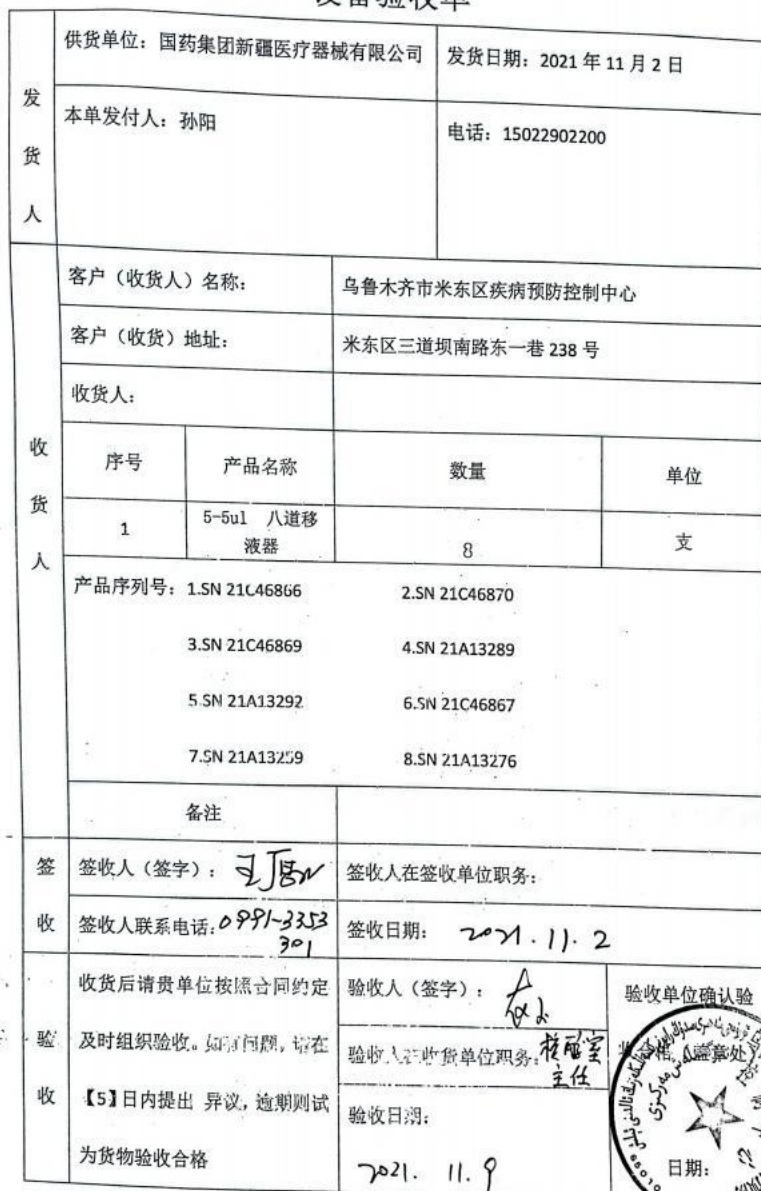 设备验收单
发货人
供货单位：国药集团新疆医疗器械有限公司
发货日期：2021 年 11 月 2 日
本单发付人：孙阳
电话：15022902200
收货人
客户（收货人）名称：
乌鲁木齐市米东区疾病预防控制中心
客户（收货）地址：
米东区三道坝南路东一巷 238 号
收货人：
序号 产品名称 数量 单位
1 5-5ul 八道移 8 支
液器
产品序列号：1.SN 21C46866 2.SN 21C46870
3.SN 21C46869 4.SN 21A13289
5.SN 21A13292 6.SN 21C46867
7.SN 21A13259 8.SN 21A13276
备注
签收
签收人（签字）：
签收人在签收单位职务：
签收人联系电话：0991-3353
301
签收日期： 2021.11.2
验收
收货后请贵单位按照合同约定
及时组织验收。如有问题，请在
【5】日内提出 异议，逾期则试
为货物验收合格
验收人（签字）：
验收人在收货单位职务：核酸室
主任
验收日期：
2021. 11. 9
验收单位确认验
收合格（盖章处）
日期：